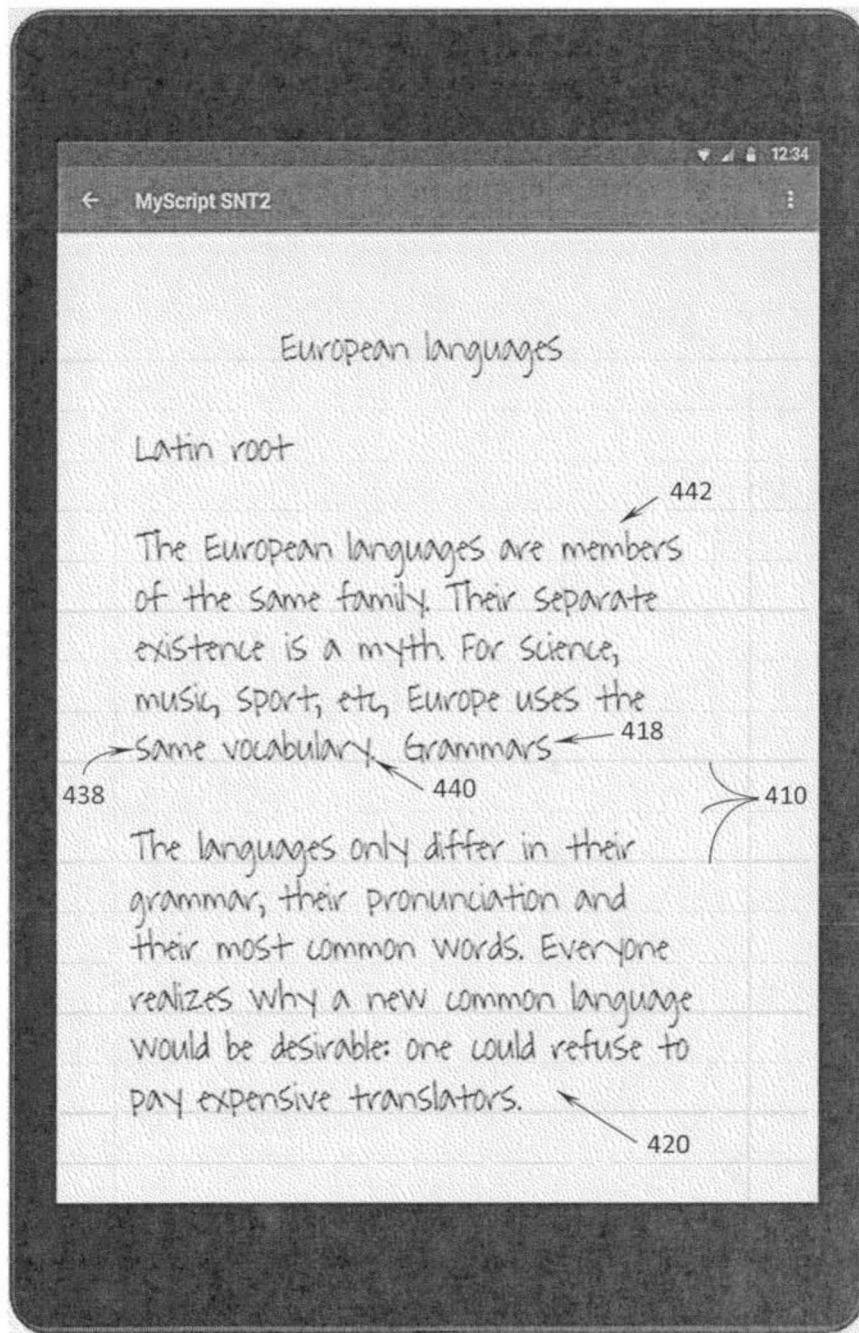 12:34
MyScript SNT2
European languages
Latin root
442
The European languages are members
of the same family. Their separate
existence is a myth. For science,
music, sport, etc, Europe uses the
same vocabulary. Grammars
418
438
440
410
The languages only differ in their
grammar, their pronunciation and
their most common words. Everyone
realizes why a new common language
would be desirable: one could refuse to
pay expensive translators.
420